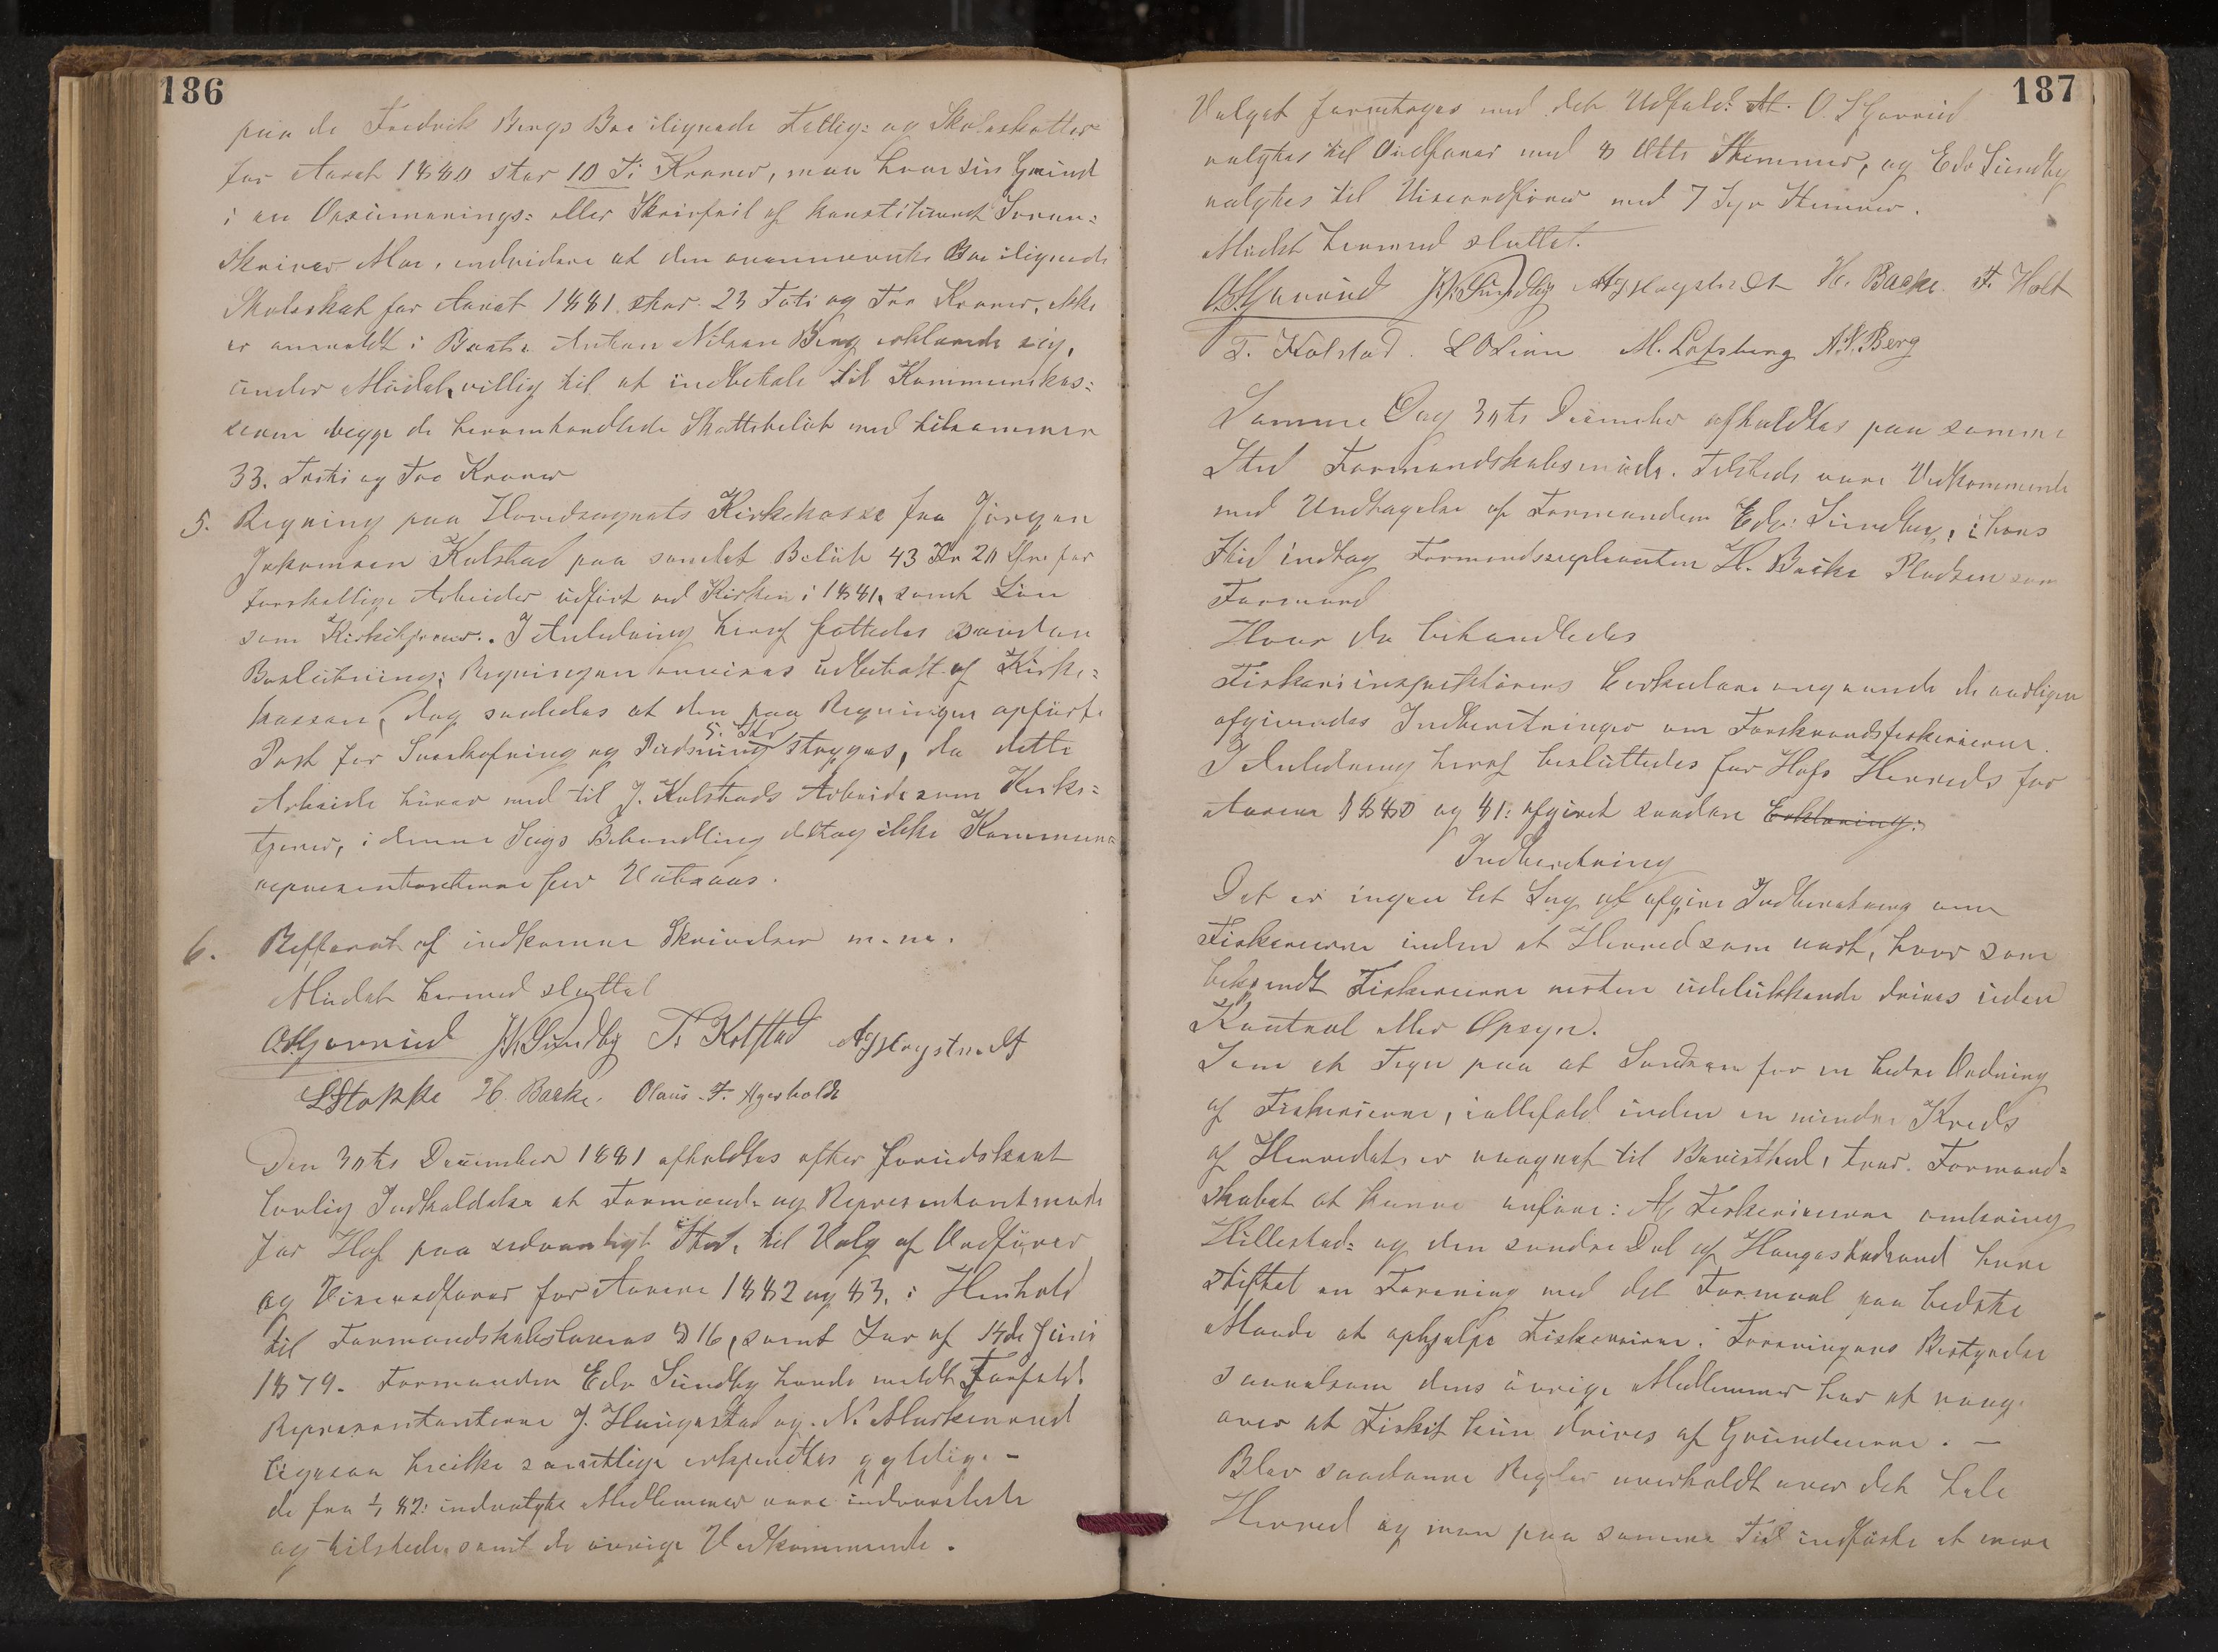 186
paa de Fredrik Bergs Boe ilignede Fattig= og Skoleskatter
for Aaret 1880 stor 10 Ti Kroner, maa have sin Grund
i en Opsumerings= eller Skrivfeil af konstitueret Soren=
skriver Moe, endvidere at den ovennævnte Boe ilignede
Skoleskat for Aaret 1881. stor 23 Toti og Tre Kroner, ikke
er anmeldt i Boet. Anton Nilsen Berg erklærede sig,
under Mödet, villig til at indbetale til Kommunekas=
seren begge de heromhandlede Skattebelöb med tilsammen
33. Treti og Tre Kroner
5. Regning paa Hovedsognets Kirkekasse fra Jörgen
Jakomsen Kolstad paa samlet Belöb 43 Kr 20 Öre for
forskellige Arbeider udfört ved Kirken i 1881, samt Lön
som Kirketjener. I Anledning heraf fattedes saadan
Beslutning: Regningen anvises udbetalt af Kirke=
kassen, dog saaledes at den paa Regningen opförte
5. Kr
Post for Sneskofning og Rensning stryges, da dette
Arbeide hörer med til J. Kolstads Arbeide som Kirke=
tjener, i denne Sags Behandling deltog ikke Kommune=
representanterne for Vasaas.
6. Refferat af indkomne Skrivelser m.m.
Mödet hermed sluttet
O.S.Gjerrud J.N.Sundby T. Kolstad A Grystvedt
L Stokke H. Bache. Olaus. F. Agerholdt
Den 30te December 1881 afholdtes efter forudskeet
lovlig Indkaldelse et Formænds og Representantmöde
for Hof paa sedvanligt Sted, til Valg af Ordförer
og Viseordförer for Aarene 1882 og 83. i Henhold
til Formandskabslovens § 16, samt Lov af 14de Juni
1879. Formanden Edv Sundby havde meldt Forfald.
Representanterne J. Haugestad og N.
ligesaa hvilke samtlige erkjendtes gyldige. –
de fra 1/1 82: indvalgte Medlemmer vare indvarslede
og tilstede samt de övrige Vedkommende.
187
Valget foretoges med det Udfald: At. O. S Gjerrud
valgtes til Ordförer med 8 Otte Stemmer, og Edv Sundby
valgtes til Viseordförer med 7 Syv Stemmer.
Mödet hermed sluttet.
O.S.Gjerrud J.N.Sundby A Grystvedt H. Bache. F. Holt
T. Kolstad. L O Lien M. Lofsberg A.N.Berg
Samme Dag 30te December afholdtes paa samme
Sted Formandskabsmöde. Tilstede vare Vedkommende
med Undtagelse af Formanden Edv: Sundby, i hans
Sted indtog Formandssupleanten H. Bache Pladsen som
Formand
Hvor da behandledes
Fiskeriinspektörens Cirkulære angaaende de aarligen
afgivendes Indberetninger om Ferskvandsfiskerierne.
I Anledning heraf besluttedes for Hofs Herreds for
Aarene 1880 og 81: afgivet saadan Erklæring:
Indberetning
Det er ingen let Sag at afgive Indberetning om
Fiskerierne inden et Herred som vort, hvor som
bekjendt Fiskerierne næsten udelukkende drives uden
Kontrol eller Opsyn.
Som et Tegn paa at Sandsen for en bedre Ordning
af Fiskerierne, iallefald inden en mindre Kreds
af Herredet er vaagnet til Bevisthed, tror Formand=
skabet at kunne anföre: At Fiskerierne omkring
Hillestad= og den söndre Del af Haugestadvand have
stiftet en Forening med det Formaal paa bedste
Maade at ophjelpe Fiskerierne. Foreningens Bestyrelse
saavelsom dens övrige Medlemmer har at vaage
over at Fisket kun drives af Grundeierne. –
Blev saadanne Regler overholdt over det hele
Herred og man paa samme Tid indförte et mere